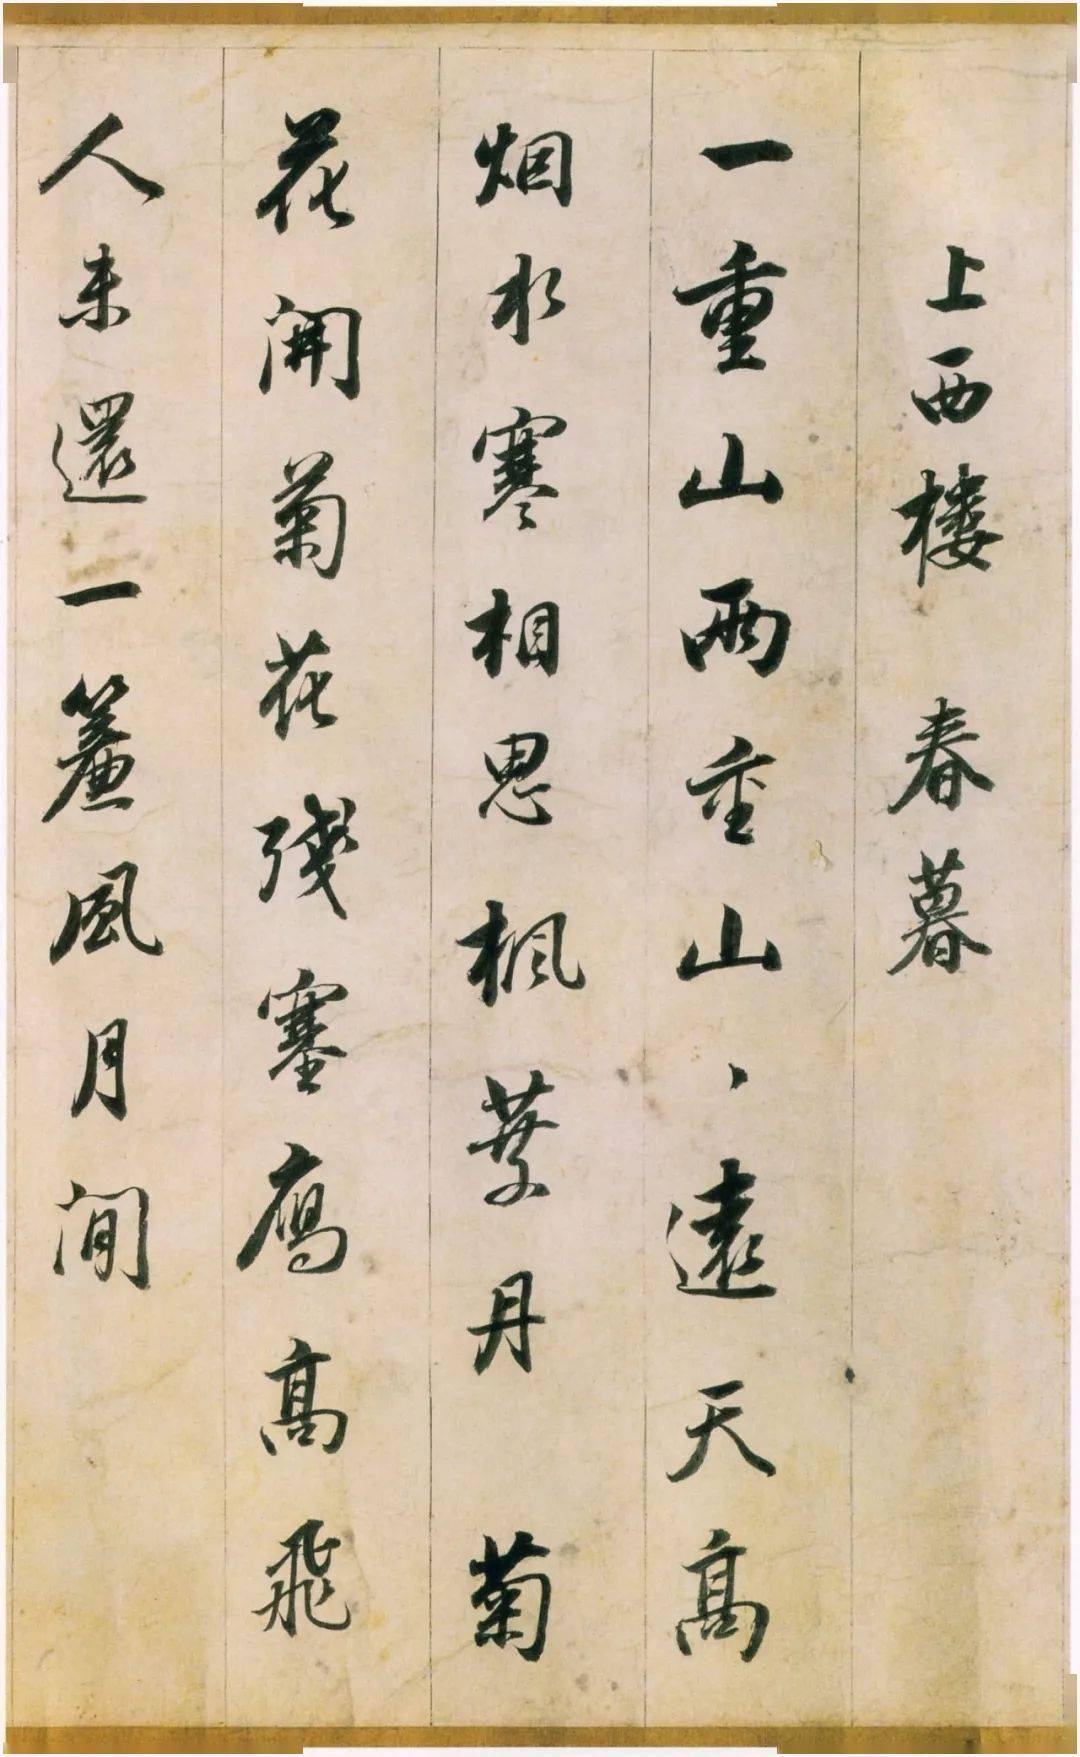 上西樓　春暮
一重山兩重山、遠天高
烟水寒相思楓葉丹　菊
花開菊花殘塞鴈高飛
人未還一簾風月間